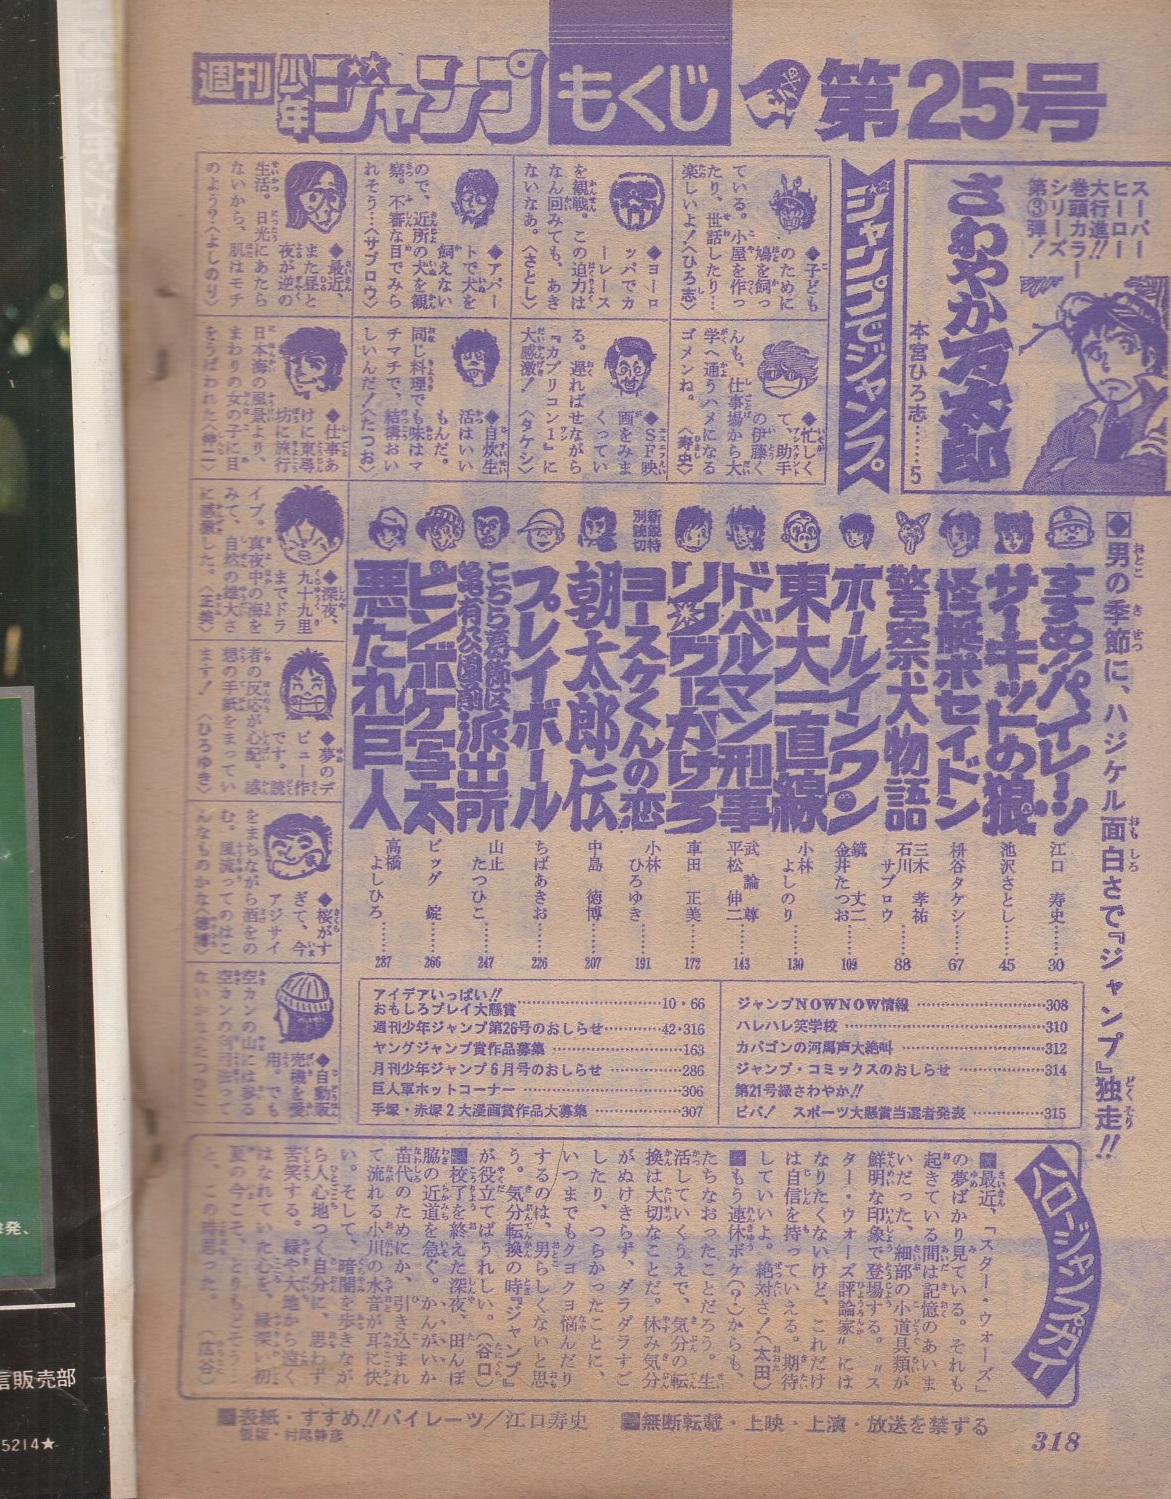 週刊少年ジャンプ もくじ 第25号
スーパー
ヒーロー
大行進!!
巻頭カラー
シリーズ
第③弾!
さわやか万太郎
本宮ひろ志……5
ジャンプでジャンプ
◆子ども
のために
鳩を飼っ
ている。小屋を作っ
たり、世話したり…
楽しいよ!〈ひろ志〉
◆ヨーロ
ッパでカ
ーレース
を観戦。この迫力は
なん回みても、あき
ないなあ。〈さとし〉
◆アパー
トで犬を
飼えない
ので、近所の犬を観
察。不審な目でみら
れそう…〈サブロウ〉
◆最近、
また昼と
夜が逆の
生活。日光にあたら
ないから、肌はモチ
のよう?〈よしのり〉
◆忙しく
て、助手
の伊藤く
んも、仕事場から大
学へ通うハメになる
ゴメンね。〈寿史〉
◆SF映
画をみま
くってい
る。遅ればせながら
『カプリコン1』に
大感激!〈タケシ〉
◆自炊生
活はいい
もんだ。
同じ料理でも味はマ
チマチで、結構おい
しいんだ!〈たつお〉
◆仕事あ
けに東尋
坊に旅行
日本海の風景より、
まわりの女の子に目
をうばわれた〈伸二〉
◆深夜、
九十九里
までドラ
イブ。真夜中の海を
みて、自然の雄大さ
に感激した。〈正美〉
◆夢のデ
ビュー作
です。読
者の反応が心配。感
想の手紙をまってい
ます!〈ひろゆき〉
◆桜がす
ぎて、今
アジサイ
をまちながら酒をの
む。風流ってのはこ
んなものかな〈徳博〉
◆自動販
売機を愛
用。でも
空カンの山には参る
空カンの利用法って
ないかな〈たつひこ〉
◆男の季節に、ハジケル面白さで『ジャンプ』独走!!
すすめ!!パイレーツ 江口寿史……30
サーキットの狼 池沢さとし……45
怪艇ポセイドン 枡谷タケシ……67
警察犬物語 三木孝祐 石川サブロウ……88
ホールインワン 鏡丈二 金井たつお……109
東大一直線 小林よしのり……130
ドーベルマン刑事 武論尊 平松伸二……143
リングにかけろ 車田正美……172
新鋭特別読切 ヨースケくんの恋 小林ひろゆき……191
朝太郎伝 中島徳博……207
プレイボール ちばあきお……226
こちら葛飾区亀有公園前派出所 山止たつひこ……247
ピンボケ写太 ビッグ錠……266
悪たれ巨人 高橋よしひろ……287
アイデアいっぱい!!
おもしろプレイ大懸賞……10・66
週刊少年ジャンプ第26号のおしらせ……42・316
ヤングジャンプ賞作品募集……163
月刊少年ジャンプ6月号のおしらせ……286
巨人軍ホットコーナー……306
手塚・赤塚2大漫画賞作品大募集……307
ジャンプNOWNOW情報……308
ハレハレ笑学校……310
カバゴンの河馬声大絶叫……312
ジャンプ・コミックスのおしらせ……314
第21号緑さわやか!!
ビバ! スポーツ大懸賞当選者発表……315
ハロージャンプガイ
■最近、『スター・ウォーズ』
の夢ばかり見ている。それも
起きている間は記憶のあいま
いだった、細部の小道具類が
鮮明な印象で登場する。“ス
ター・ウォーズ評論家”には
なりたくないけど、これだけ
は自信を持っていえる。期待
していいよ。絶対さ!(太田)
■もう連休ボケ(?)からも、
たちなおったことだろう。生
活していくうえで、気分の転
換は大切なことだ。休み気分
がぬけきらず、ダラダラすご
したり、つらかったことに、
いつまでもクヨクヨ悩んだり
するのは、男らしくないと思
う。気分転換の時『ジャンプ』
が役立てばうれしい。(谷口)
■校了を終えた深夜、田んぼ
脇の近道を急ぐ。かんがいか
苗代のためにか、引き込まれ
て流れる小川の水音が耳に快
い。そして、暗闇を歩きなが
ら人心地つく自分に、思わず
苦笑する。緑や大地から遠く
はなれていた心を、緑深い初
夏の今こそ、とりもどそう…
と、この時思った。(広谷)
■表紙・すすめ!!パイレーツ/江口寿史
製版・村尾静彦
■無断転載・上映・上演・放送を禁ずる
318
発、
言販売部
5214★